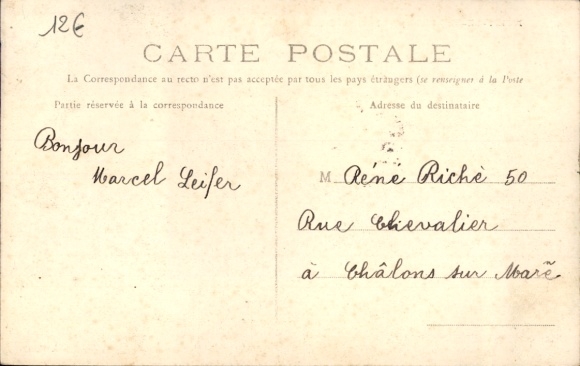 12€
CARTE POSTALE
La Correspondance au recto n'est pas acceptée par tous les pays étrangers (se renseigner à la Poste
Partie réservée à la correspondance
Adresse du destinataire
Bonjour
Marcel Leifer
M René Riché 50
Rue Chevalier
à Châlons sur Marñe